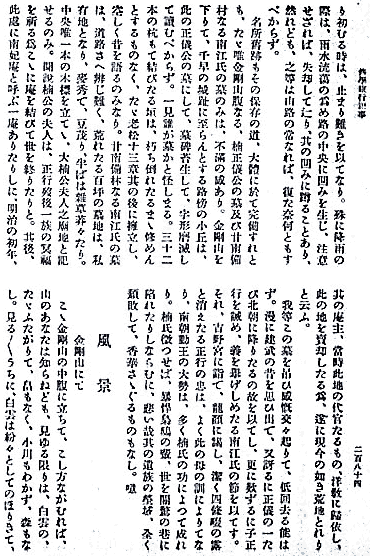 り初むる時は、止まり難きを以てなり。殊に降雨の
際は、雨水流蕩の爲め路の中央に凹みを生じ、注意
せざれば、失却して辷り、其の凹みに蹲ることあり。
然れども、之等は山路の常なれば、復た奈何ともす
べからず。
名所舊跡もその保存の道、大體に於て完備すれど
も、たゞ唯金剛山腹なる、楠正儀の墓及び甘南備
村なる南江氏の墓のみは、不滿の感あり。金剛山を
下りて、千早の城趾に至らんとする路傍の小丘は、
此の正儀公の墓にして、墓碑者生して、字形磨滅し
て讀むべからず。一見誰が墓かと怪しまる。三十二
本の杭もて結びたる垣は、朽ち倒れたるまゝ修めん
とするものなく、たゞ老松十三章其の後に擁立し、
空しく昔を語るのみなり。甘南備村なる南江氏の墓
は、道路さへ辨じ難く、荒れたる百坪の墓地は、私
有地となり、麥秀で、豆茂り、半ばは雜草莽々たり。
中央唯一本の木標を立て、大楠公夫人之廟地と記
せるのみ。聞説楠公の夫人は、正行歿後一族の冥福
を祈る爲こゝに庵を結びて世を終りたりと。北後、
此處に南妃庵と呼ぶ一庵ありたりしに、明治の初年、
二百八十四
其の庵主、當時此地の代官なるもの、洋敎に歸依し、
此の地を賣却したる爲、遂に現今の如き荒地とれり
と云ふ。
我等この墓を弔ひ感慨交々起りて、低回去る能は
ず。漫に建武の昔を思ひ出で、又訝るに正儀の一た
び北朝に降りたるの故を以てし、更に數ずるに子正
行を誡め、義を擧げしめたる南江氏の節を以てす。
それ、吉野宮に詣で、龍顏に謁し、潔く四條畷の露
と消えたる正行の忠は、よく此の母の訓によりてな
り。南朝勤王の大勢は、多く楠氏の功によつて成れ
り。楠氏微つせば、暴悍烏鴟の蠻、世を闇黑の巷に
陷れたりしならむに、悲い哉其の遺族の塋域、余く
類敗して、香華さゝぐるものもなし。噫
風景
金剛山にて
こゝ金剛山の中腹に立ちて、こし方ながむれば、
山のあなたは知らねども、見ゆる限りは、白雲の、
たゞふたがりて、畠もなく、小川もわかず、森もな
し。見る〱うちに、白雲は紛々としてのぼりきて、